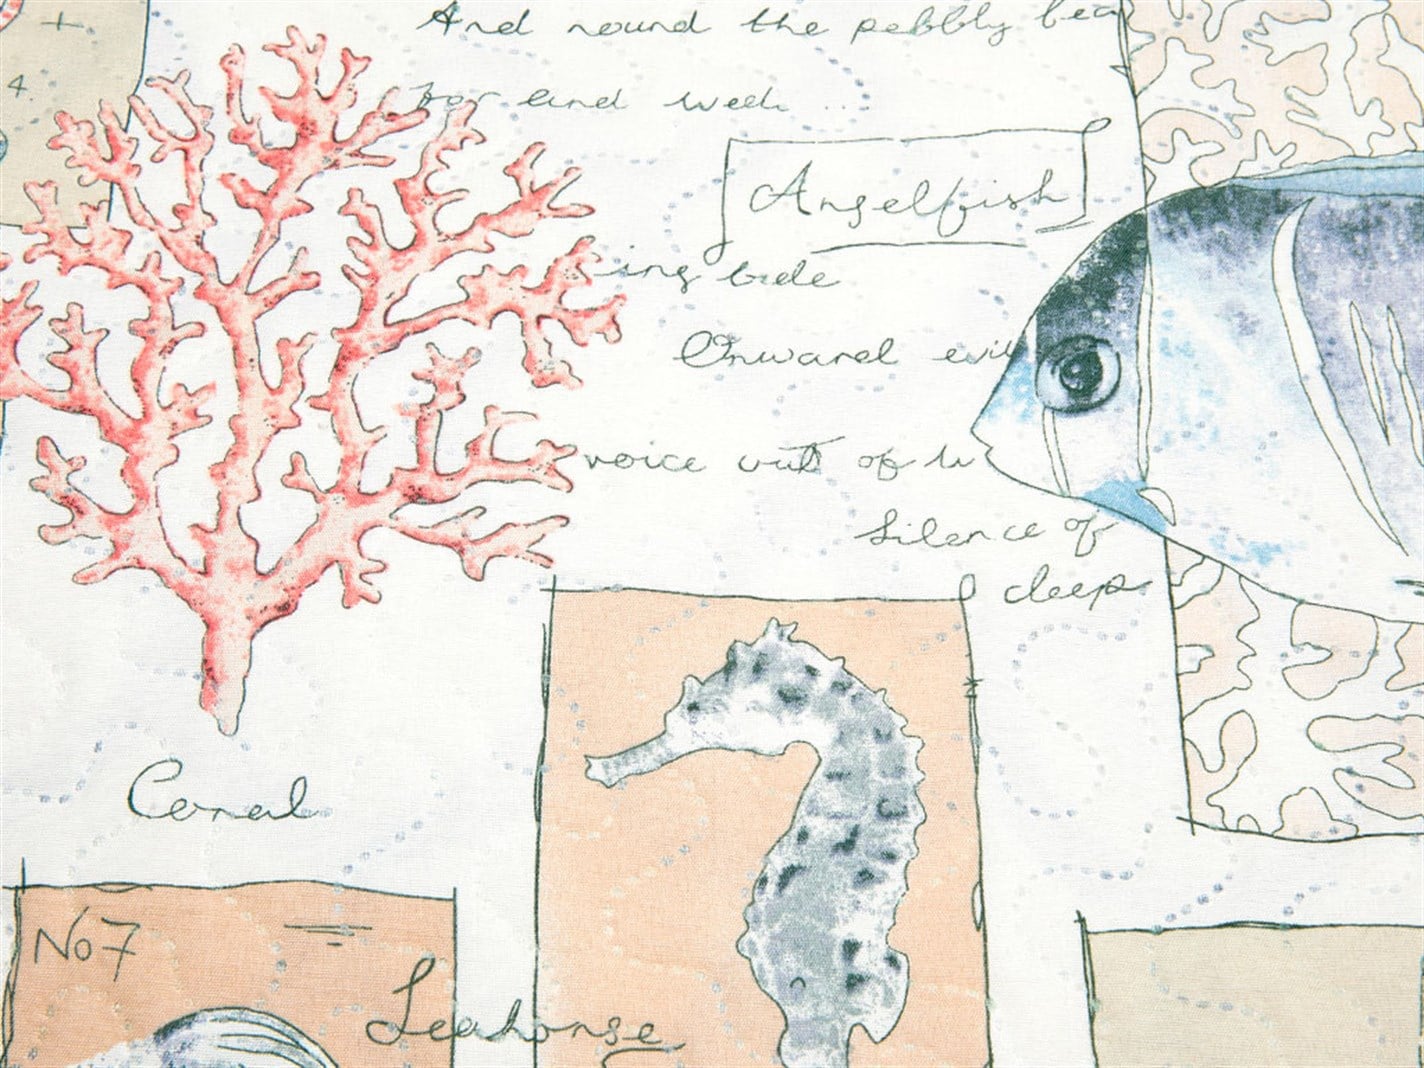 And round the pebbly bea
for and wee
Angelfish
ing tide
Onward
voice out of
Silence of
deep
Coral
No 7
Seahorse
4.